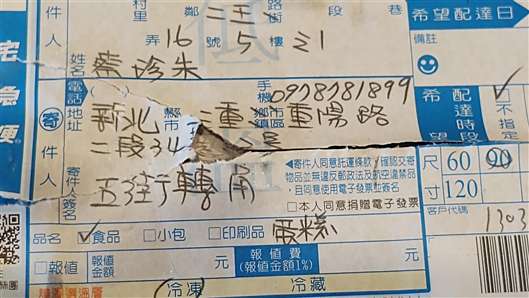 村里 鄰 三王 路街 段 巷
弄16號5樓之1
希望配達日
備註
宅急便
件人
姓名 蔡珍朱
電話
手機 0978781899
希望配達時段
✓不指定
寄件人
地址 新北 縣市 三重 重陽路
二段34
寄件人簽名 五往行轉角
◀寄件人同意託運條款/確認交寄
物品並無違反郵政法及航空違禁品
,且同意使用電子發票並簽名
□本人同意捐贈電子發票
尺寸 60 90
120
客戶代碼
1303
品名 ✓食品 □小包 □印刷品 蛋糕
□報值 報值金額 元
報值費
(報值金額1%)
冷凍 冷藏